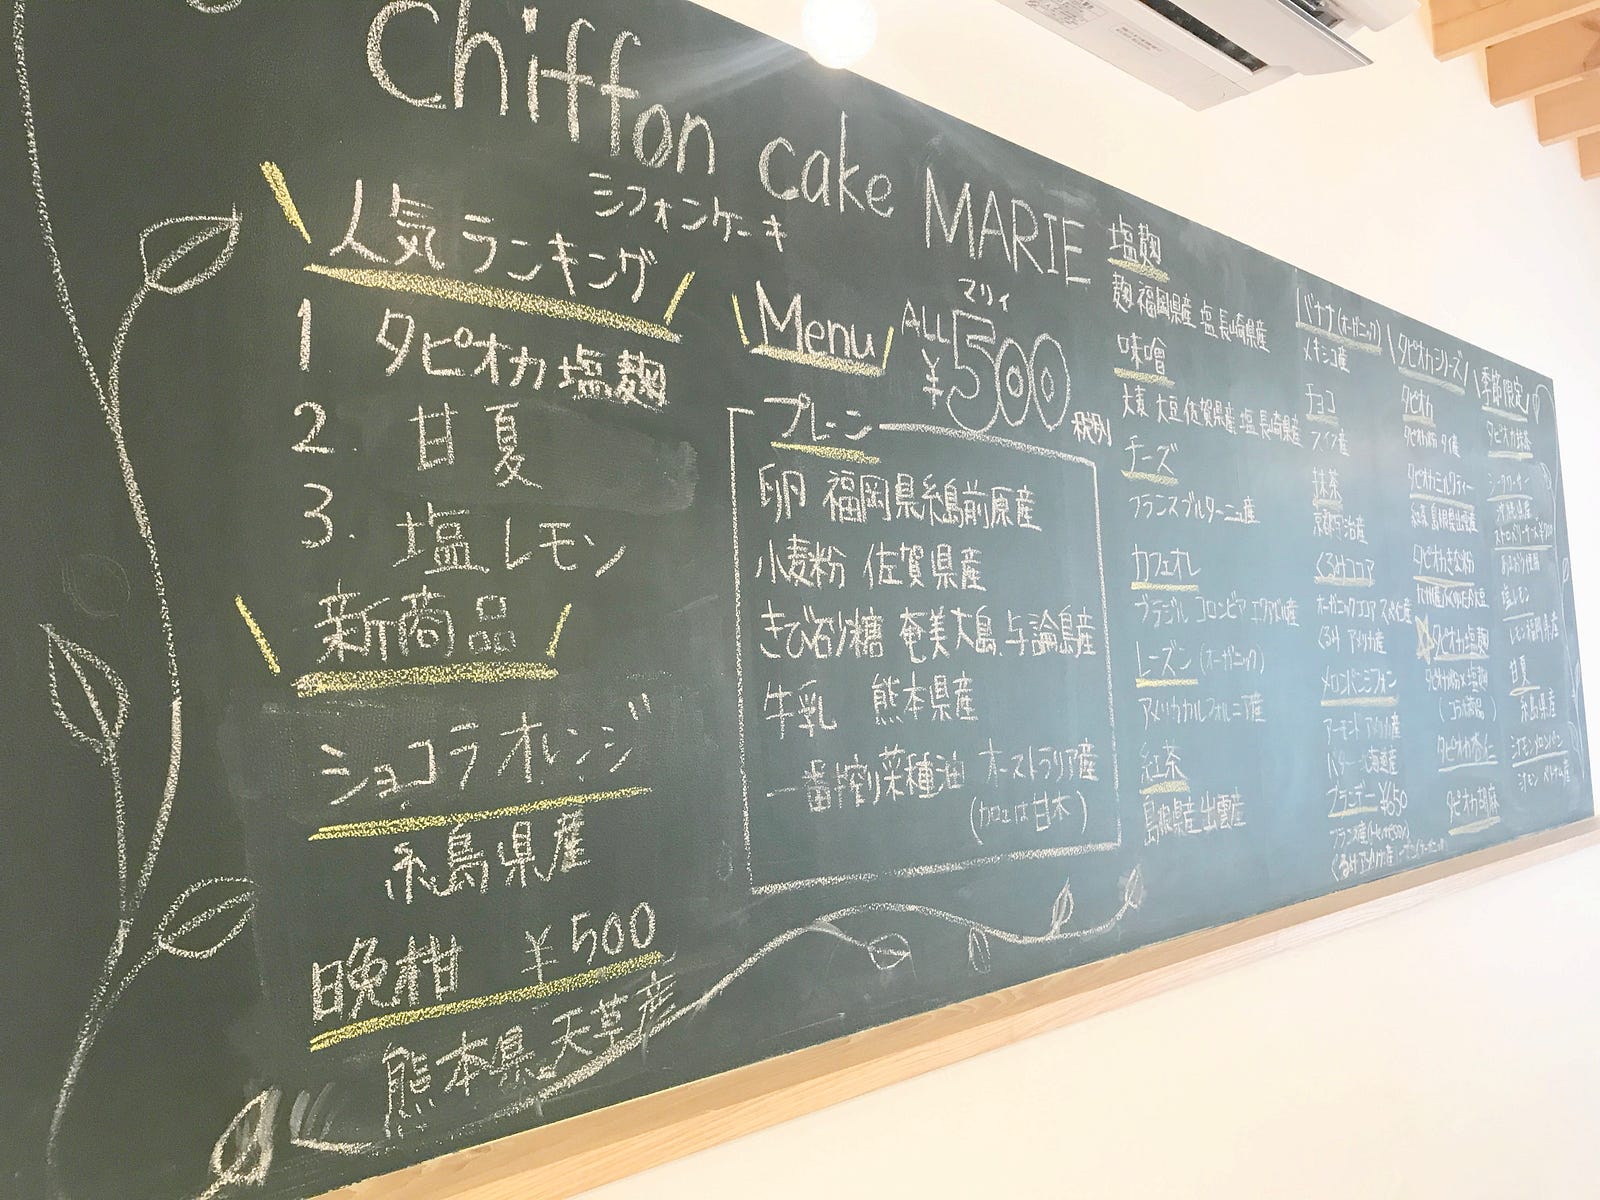 Chiffon cake MARIE
シフォンケーキ
マリィ
人気ランキング
1 タピオカ塩麹
2. 甘夏
3. 塩レモン
新商品
ショコラオレンジ
糸島県産
晩柑 ¥500
熊本県天草産
Menu
ALL ¥500
税別
プレーン
卵 福岡県糸島前原産
小麦粉 佐賀県産
きび砂糖 奄美大島.与論島産
牛乳 熊本県産
一番搾り菜種油 オーストラリア産
(加工は甘木)
塩麹
麹 福岡県産 塩 長崎県産
味噌
大麦 大豆 佐賀県産 塩 長崎県産
チーズ
フランスブルターニュ産
カフェオレ
ブラジル コロンビア エクアドル産
レーズン (オーガニック)
アメリカカルフォルニア産
紅茶
島根県産出雲産
バナナ(オーガニック)
メキシコ産
チョコ
抹茶
京都宇治産
くるみココア
オーガニックココア スペイン産
くるみ アメリカ産
メロンパンシフォン
アーモンド アメリカ産
バター 北海道産
ブランデー ¥650
タピオカシリーズ
タピオカ
タピオカ粉 タイ産
タピオカミルクティー
タピオカきな粉
タピオカ塩麹
タピオカ粉×塩麹
(コラボ商品)
タピオカ杏仁
タピオカ胡麻
季節限定
タピオカ抹茶
シークワーサー
沖縄県産
塩レモン
レモン福岡県産
甘夏
糸島県産